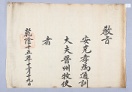 敎旨
安克孝爲通訓
大夫晉州牧使
者
乾隆十五年十二月十九日